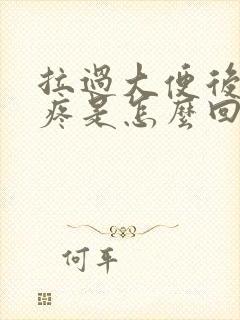 拉過大便後
疼是怎麼回
何平